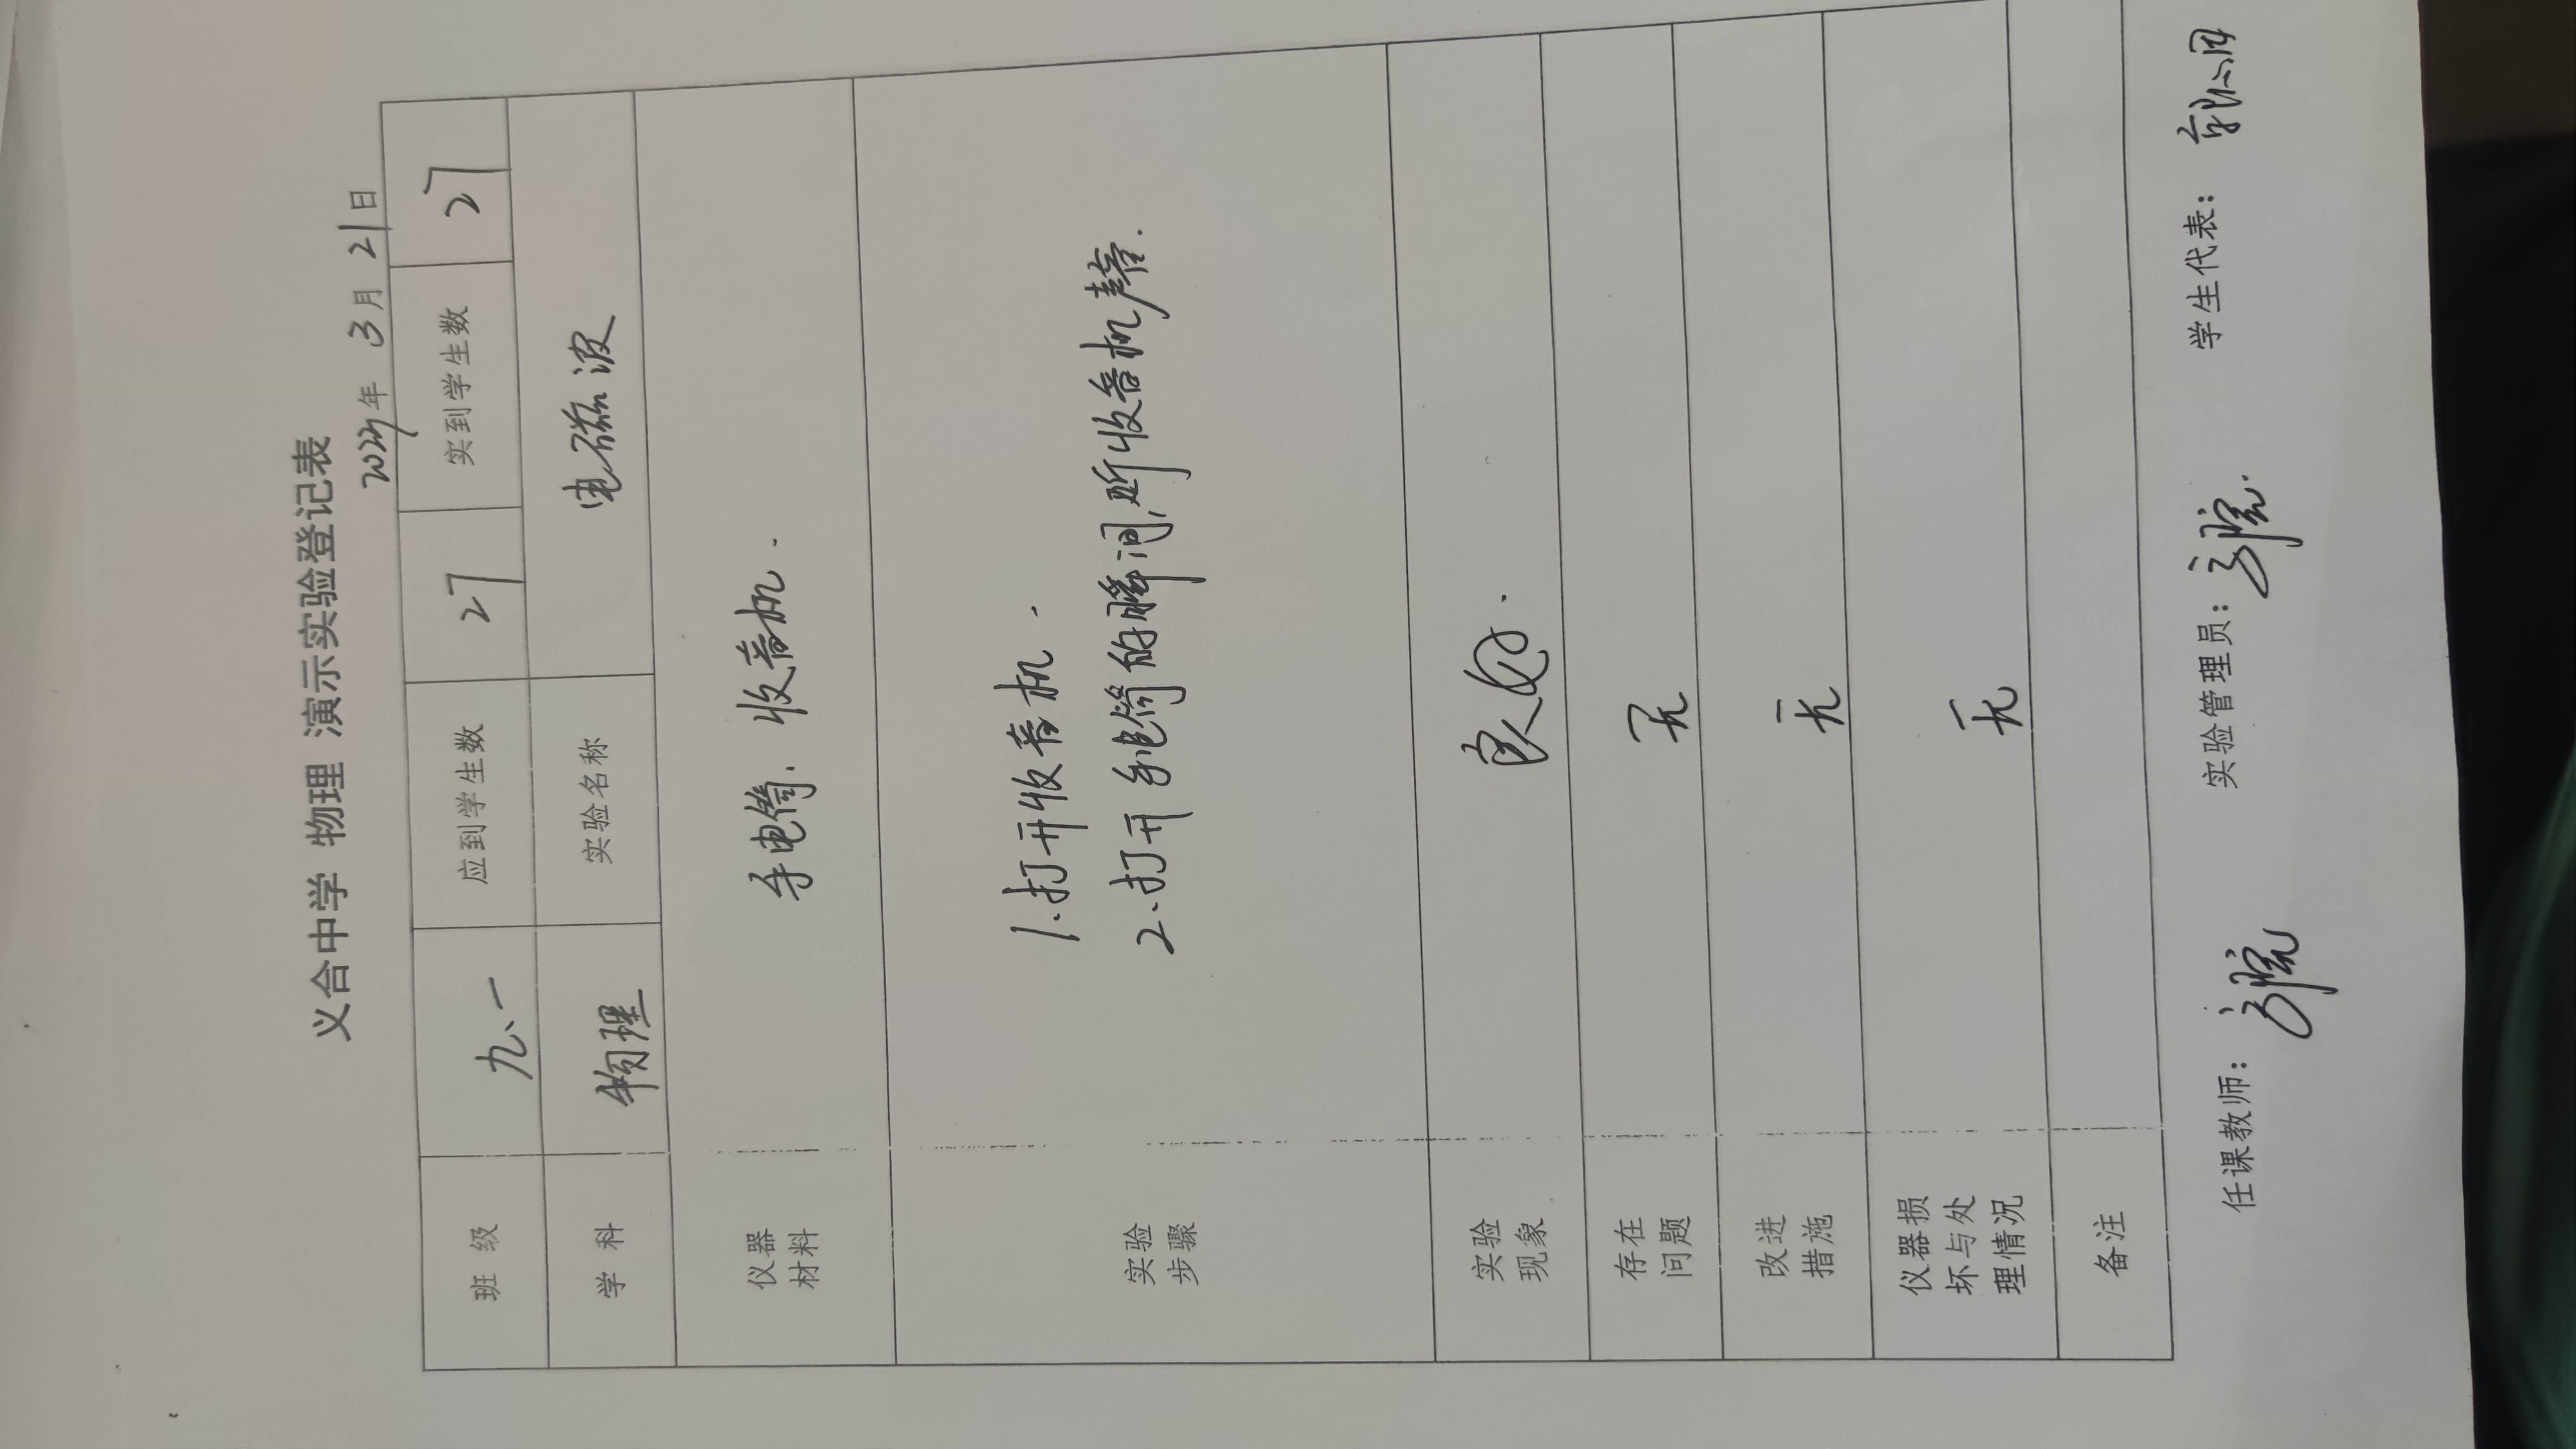 义合中学 物理 演示实验登记表
年 3月 21日
班级 九、一 应到学生数 27 实到学生数 27
学科 物理 实验名称 电磁波
仪器材料 手电筒、收音机.
实验步骤
1.打开收音机.
2.打开手电筒的瞬间,听收音机声音.
实验现象 良好.
存在问题 无
改进措施 无
仪器损坏与处理情况 无
备注
任课教师: 实验管理员: 学生代表: